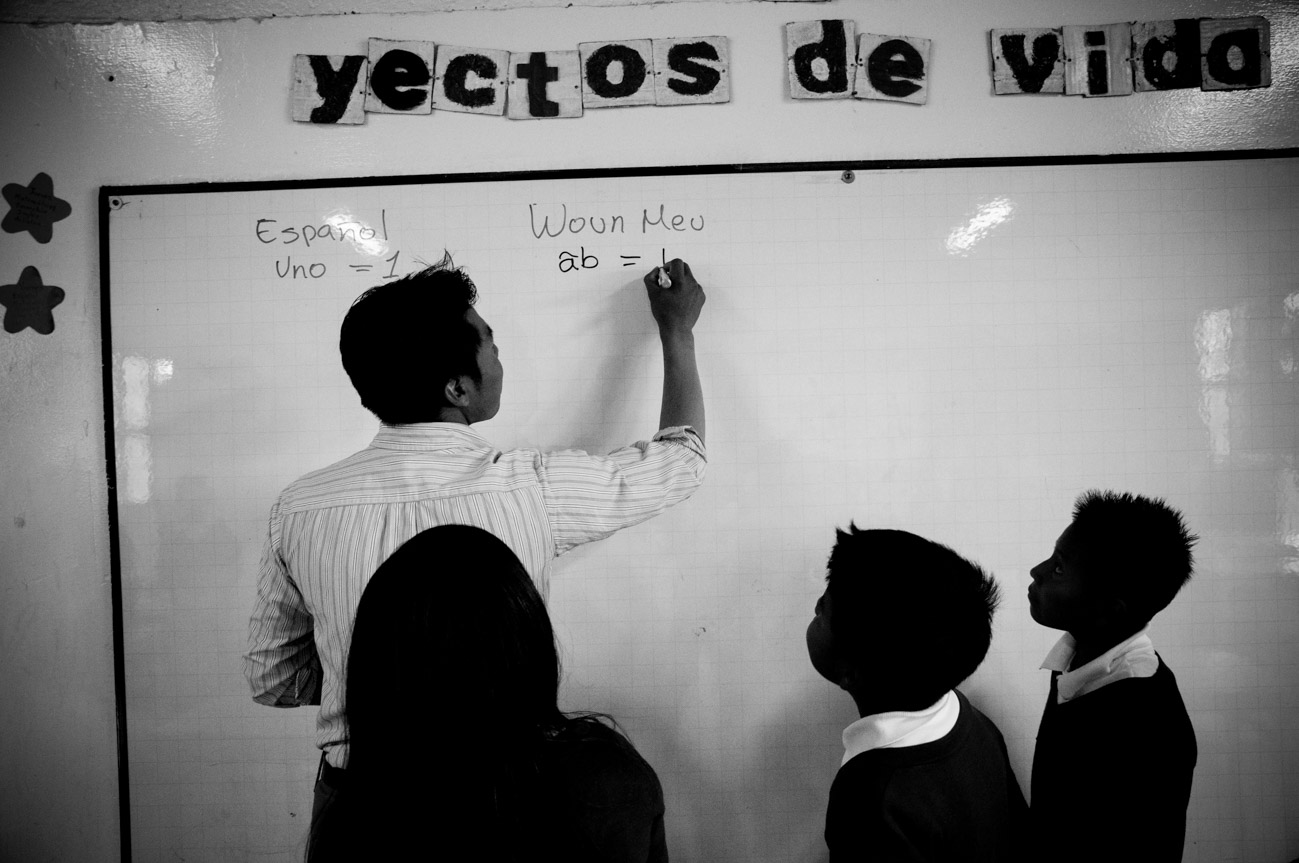 yectos de vida
Español Woun Meu
uno = 1 ãb = 1